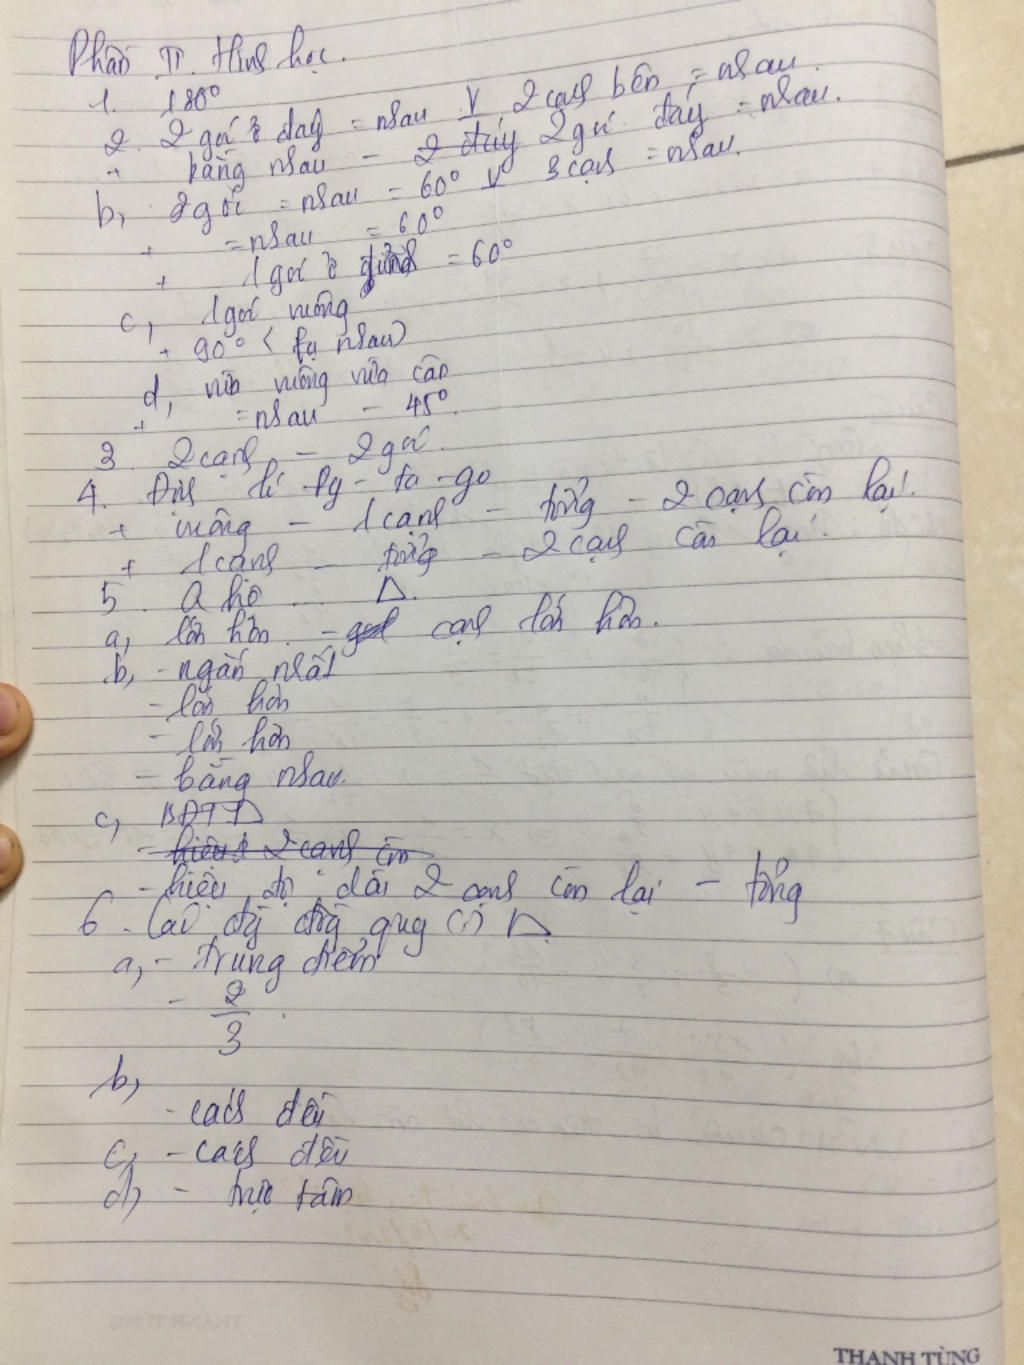 Phần II. Hình học.
1. 180°
2. 2 góc ở đáy = nhau V 2 cạnh bên = nhau.
+ bằng nhau - 2 đáy 2 góc đáy = nhau.
b, 2 góc = nhau = 60° V 3 cạnh = nhau.
+ = nhau = 60°
+ 1 góc ở đỉnh = 60°
c, 1 góc vuông
+ 90° ( fụ nhau)
d, vừa vuông vừa cân
+ = nhau - 45°.
3. 2 cạnh - 2 góc.
4. Định lí Py-ta-go
+ vuông - 1 cạnh - tổng - 2 cạnh còn lại.
+ 1 cạnh - tổng - 2 cạnh còn lại.
5. Q hệ ... Δ.
a, lớn hơn. - cạnh lớn hơn.
b, - ngắn nhất
- lớn hơn
- lớn hơn
- bằng nhau.
c, BĐT Δ
- hiệu 2 cạnh còn
- hiệu độ dài 2 cạnh còn lại - tổng
6. Các đg đồg quy Δ
a, - trung điểm
- 2/3.
b,
- cách đều
c, - cách đều
d, - trực tâm
THANH TÙNG
THANH TÙNG